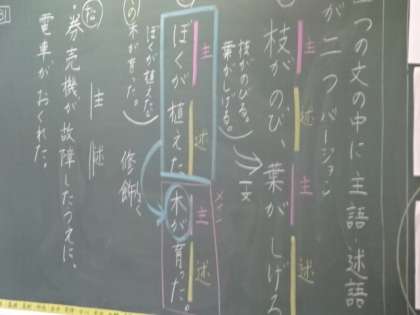 つの文の中に主語・述語
が二つバージョン
主 述 主 述
枝がのび、葉がしげる
枝がのびる。
葉がしげる。
一文
主 述 主 述
ぼくが植えた木が育った。
メイン
修飾
ぼくが植えた。
の木が育った。
主 述
・券売機が故障したうえに、
電車がおくれた。